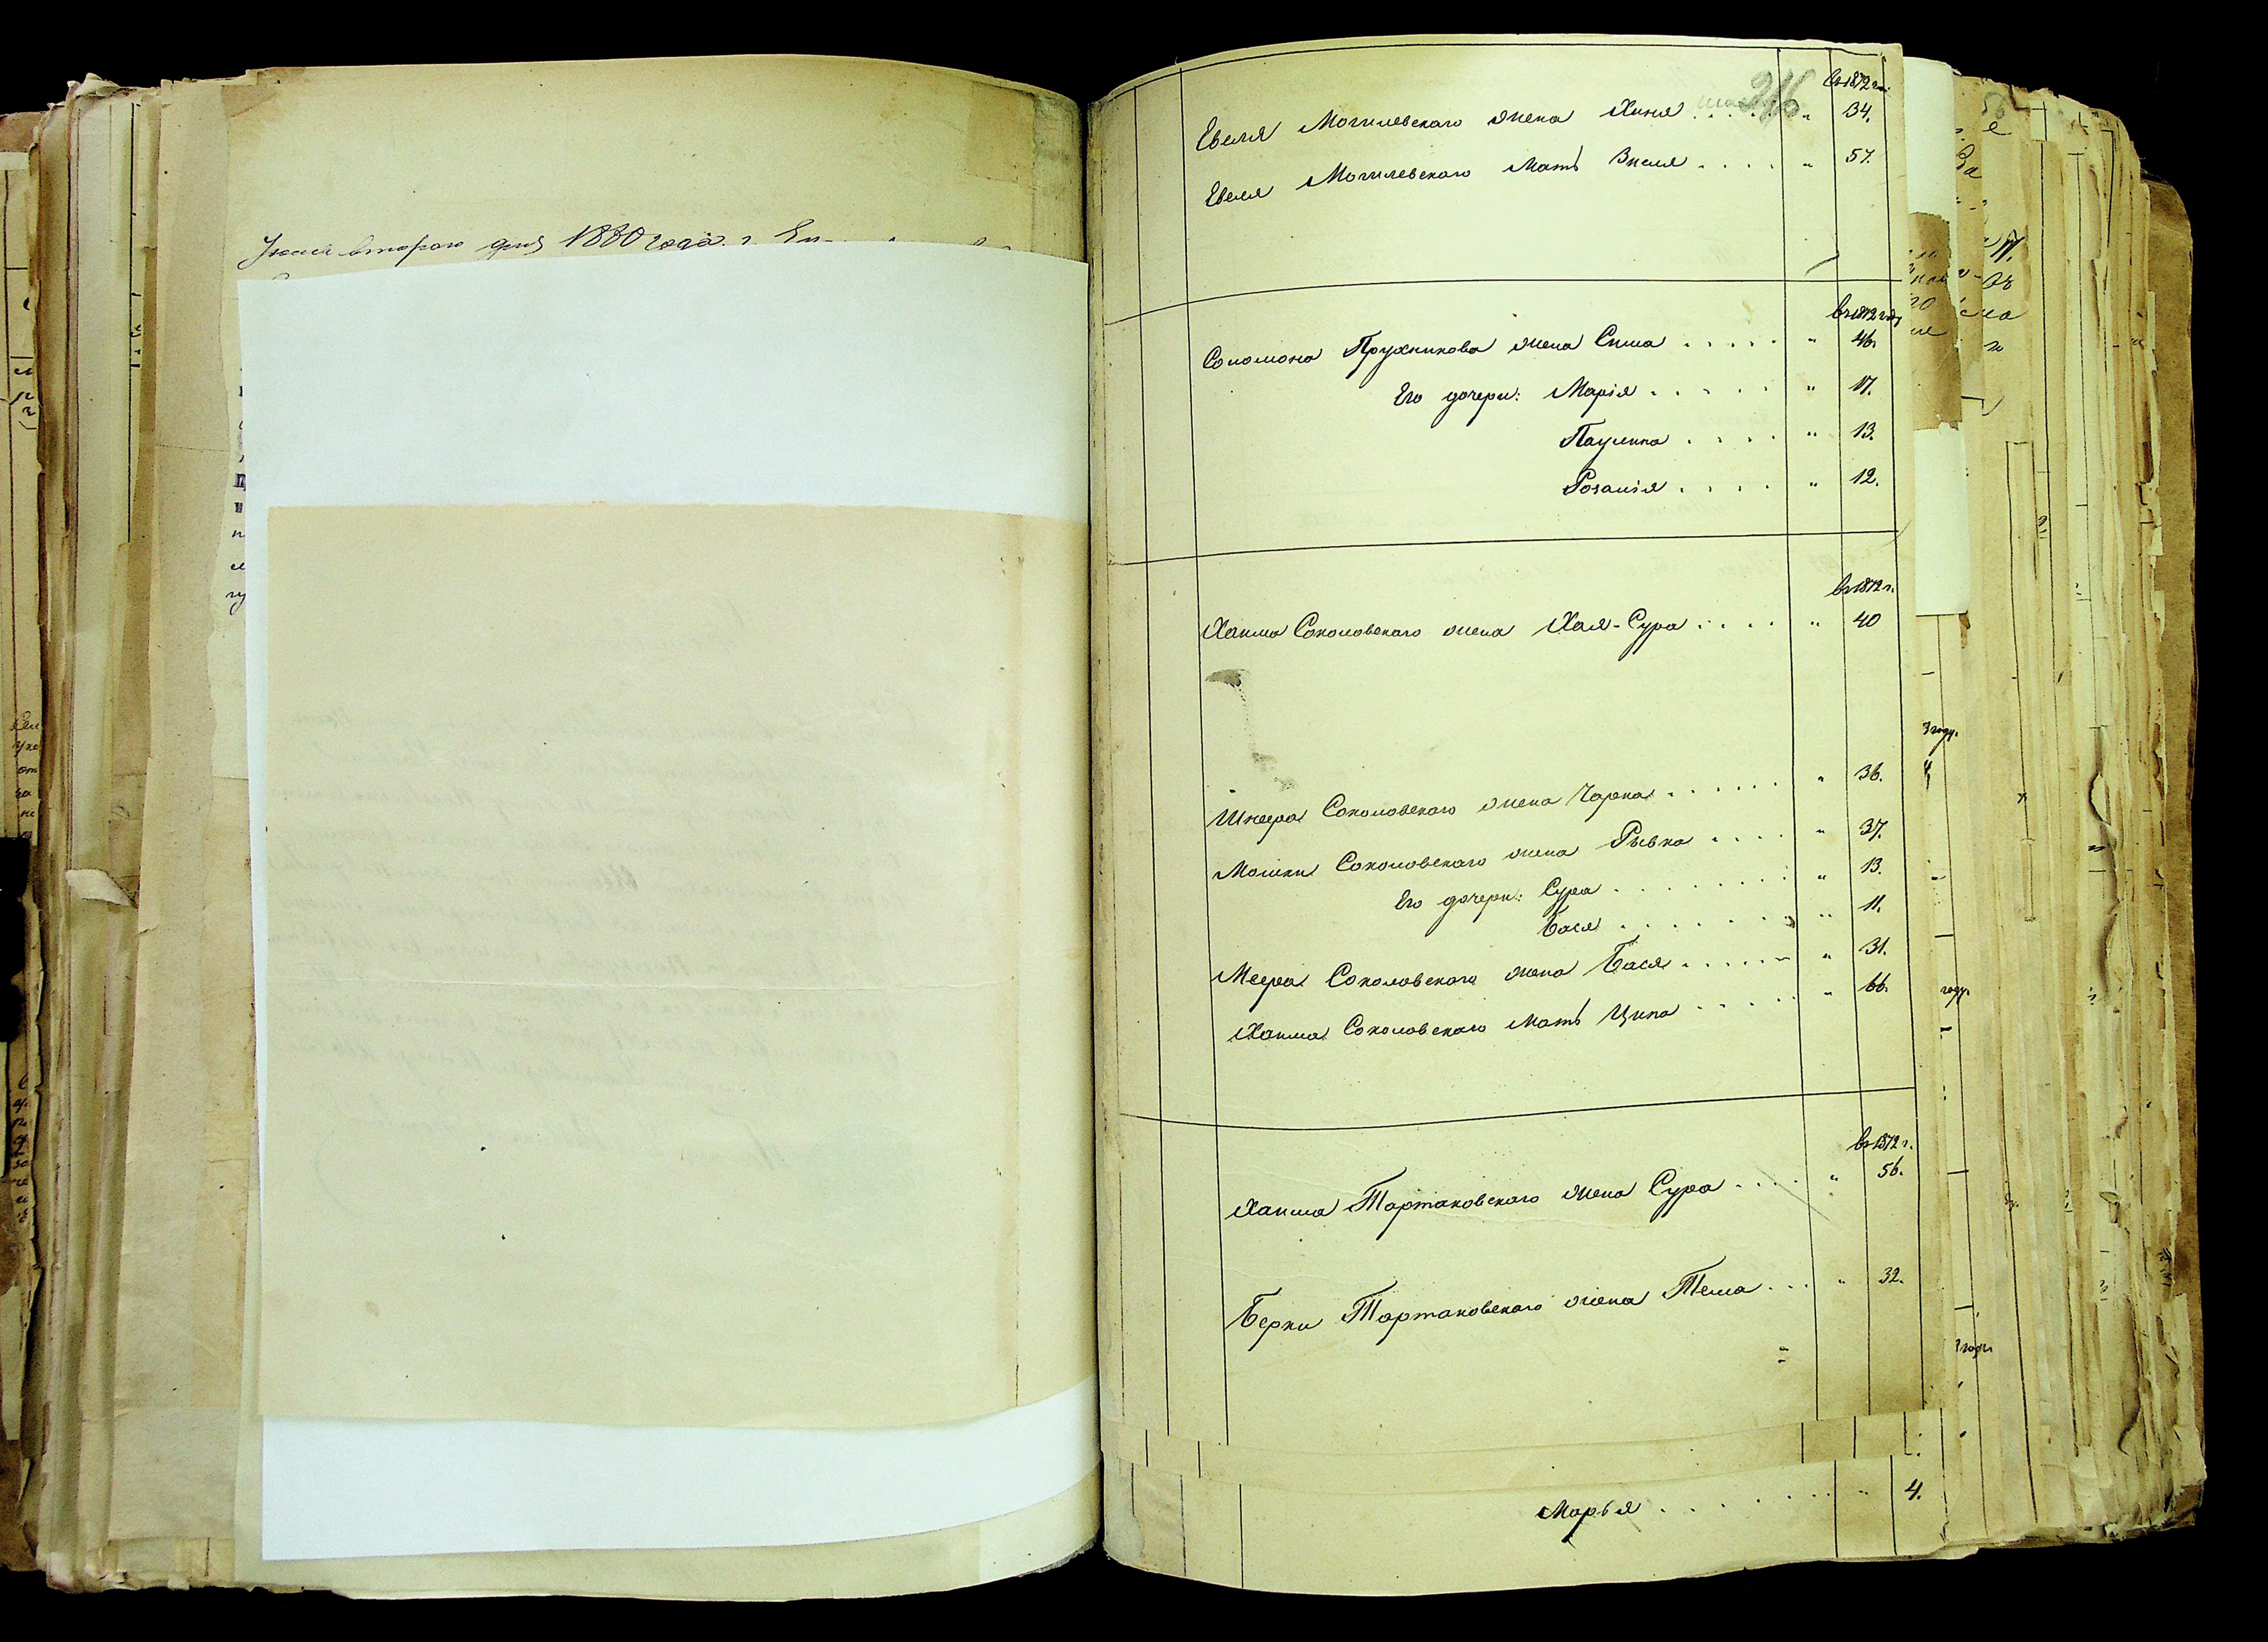 втораго дня 1880 года г.
въ 1872 г.
Евеля Могилевскаго жена Хиня . . . . " 34.
Евеля Могилевскаго мать Зисля . . . . " 57.
въ 1872 году
Соломона Пружинова жена Сима . . . . . " 46.
Его дочери: Марія . . . . . " 17.
Паулина . . . . " 13.
Розалія . . . . " 12.
въ 1872 г.
Хаима Соколовскаго жена Хая-Сура . . . . " 40
Шнеера Соколовскаго жена Чарна . . . . . " 36.
Мошки Соколовскаго жена Рывка . . . . " 37.
Его дочери: Сура . . . . . . . " 13.
Бася . . . . . . " 11.
Меера Соколовскаго жена Бася . . . . . " 31.
Хаима Соколовскаго мать Ципа . . . . . " 66.
въ 1872 г.
Хаима Тартаковскаго жена Сура . . . . " 56.
Берки Тартаковскаго жена Тема . . . " 32.
Марья . . . . . . . . " 4.